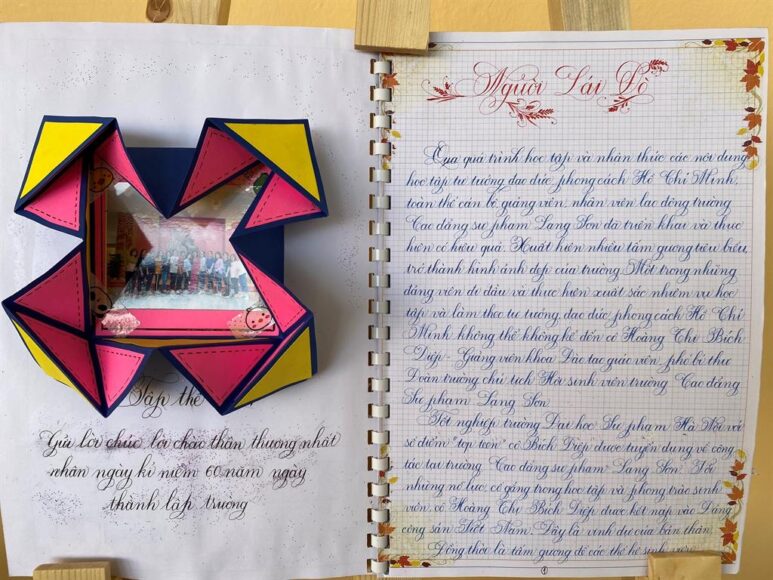 Tập thể
Gửi lời chúc lời chào thân thương nhất
nhân ngày kỉ niệm 60 năm ngày
thành lập trường
Người Lái Đò
Qua quá trình học tập và nhận thức các nội dung
học tập tư tưởng đạo đức phong cách Hồ Chí Minh,
toàn thể cán bộ giảng viên, nhân viên lao động trường
Cao đẳng sư phạm Lạng Sơn đã triển khai và thực
hiện có hiệu quả. Xuất hiện nhiều tấm gương tiêu biểu,
trở thành hình ảnh đẹp của trường. Một trong những
đảng viên đi đầu và thực hiện xuất sắc nhiệm vụ học
tập và làm theo tư tưởng, đạo đức phong cách Hồ Chí
Minh không thể không kể đến cô Hoàng Thị Bích
Diệp - Giảng viên khoa Đào tạo giáo viên, phó bí thư
Đoàn trường chủ tịch Hội sinh viên trường Cao đẳng
Sư phạm Lạng Sơn
Tốt nghiệp trường Đại học Sư phạm Hà Nội với
số điểm "top ten" cô Bích Diệp được tuyển dụng về công
tác tại trường Cao đẳng sư phạm Lạng Sơn. Với
những nỗ lực, cố gắng trong học tập và phong trào sinh
viên, cô Hoàng Thị Bích Diệp được kết nạp vào Đảng
cộng sản Việt Nam. Đây là vinh dự của bản thân,
Đồng thời là tấm gương để các thế hệ sinh viên